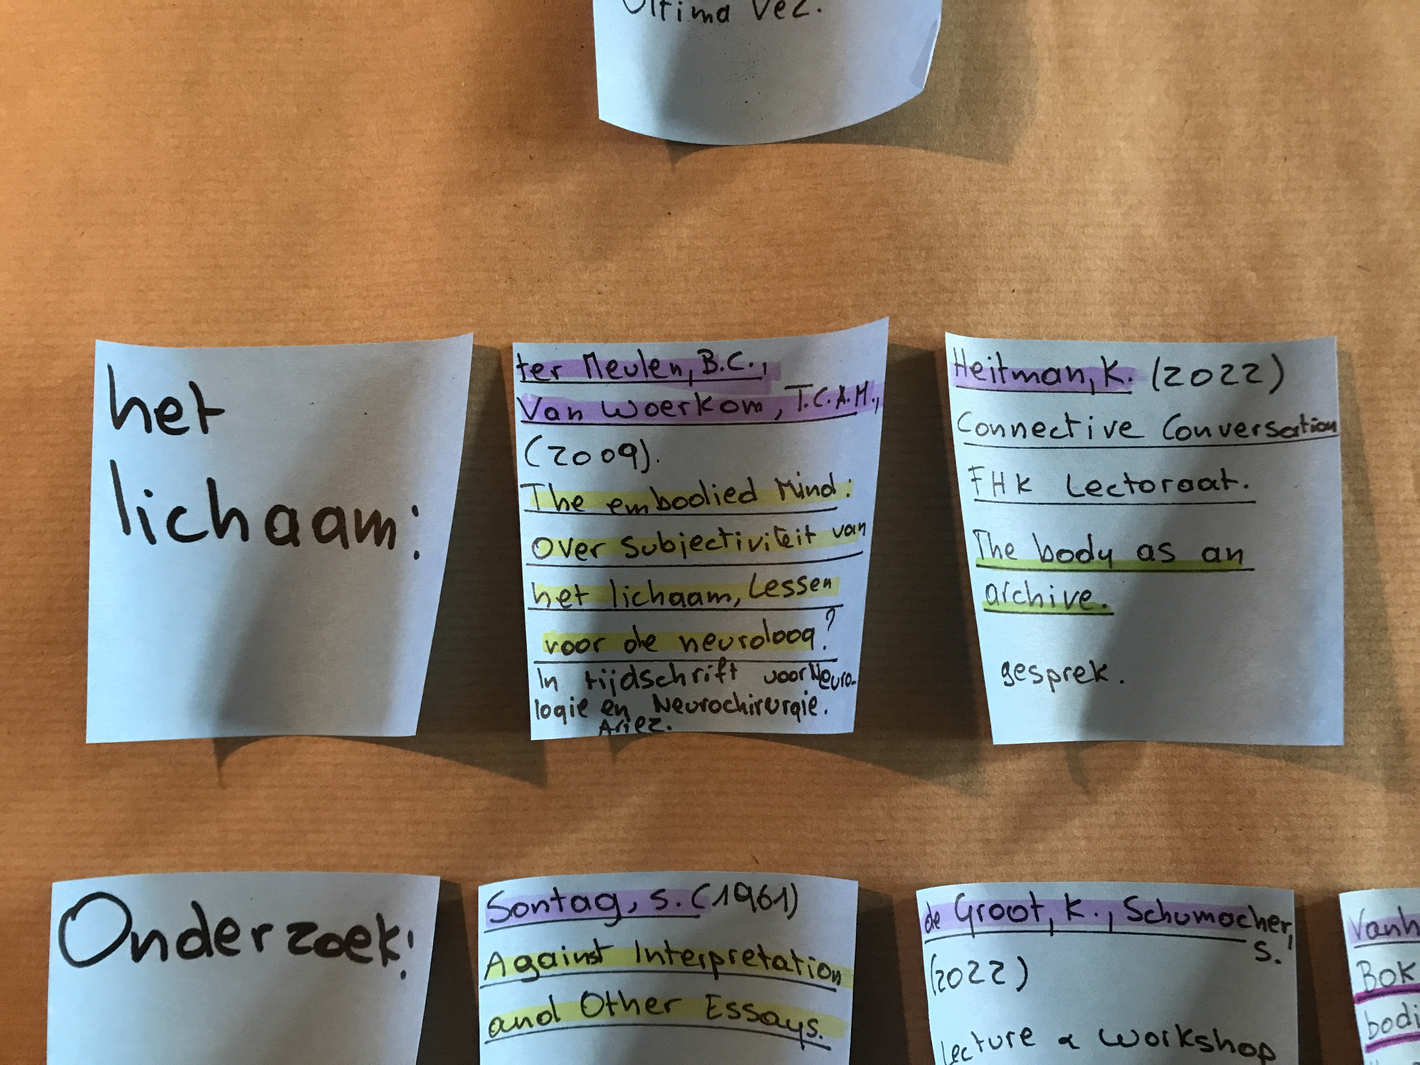 Ultima Vez.
het
lichaam:
ter Meulen, B.C.,
Van Woerkom, T.C.A.M.,
(2009).
The embodied Mind:
over subjectiviteit van
het lichaam, Lessen
voor de neuroloog?
In tijdschrift voor Neuro-
logie en Neurochirurgie.
Ariez.
Heitman, K. (2022)
Connective Conversation
FHK Lectoraat.
The body as an
archive.
gesprek.
Onderzoek:
Sontag, S. (1961)
Against Interpretation
and Other Essays.
de Groot, K., Schumacher,
S.
(2022)
Lecture & Workshop
Vanh
Bok
bodi